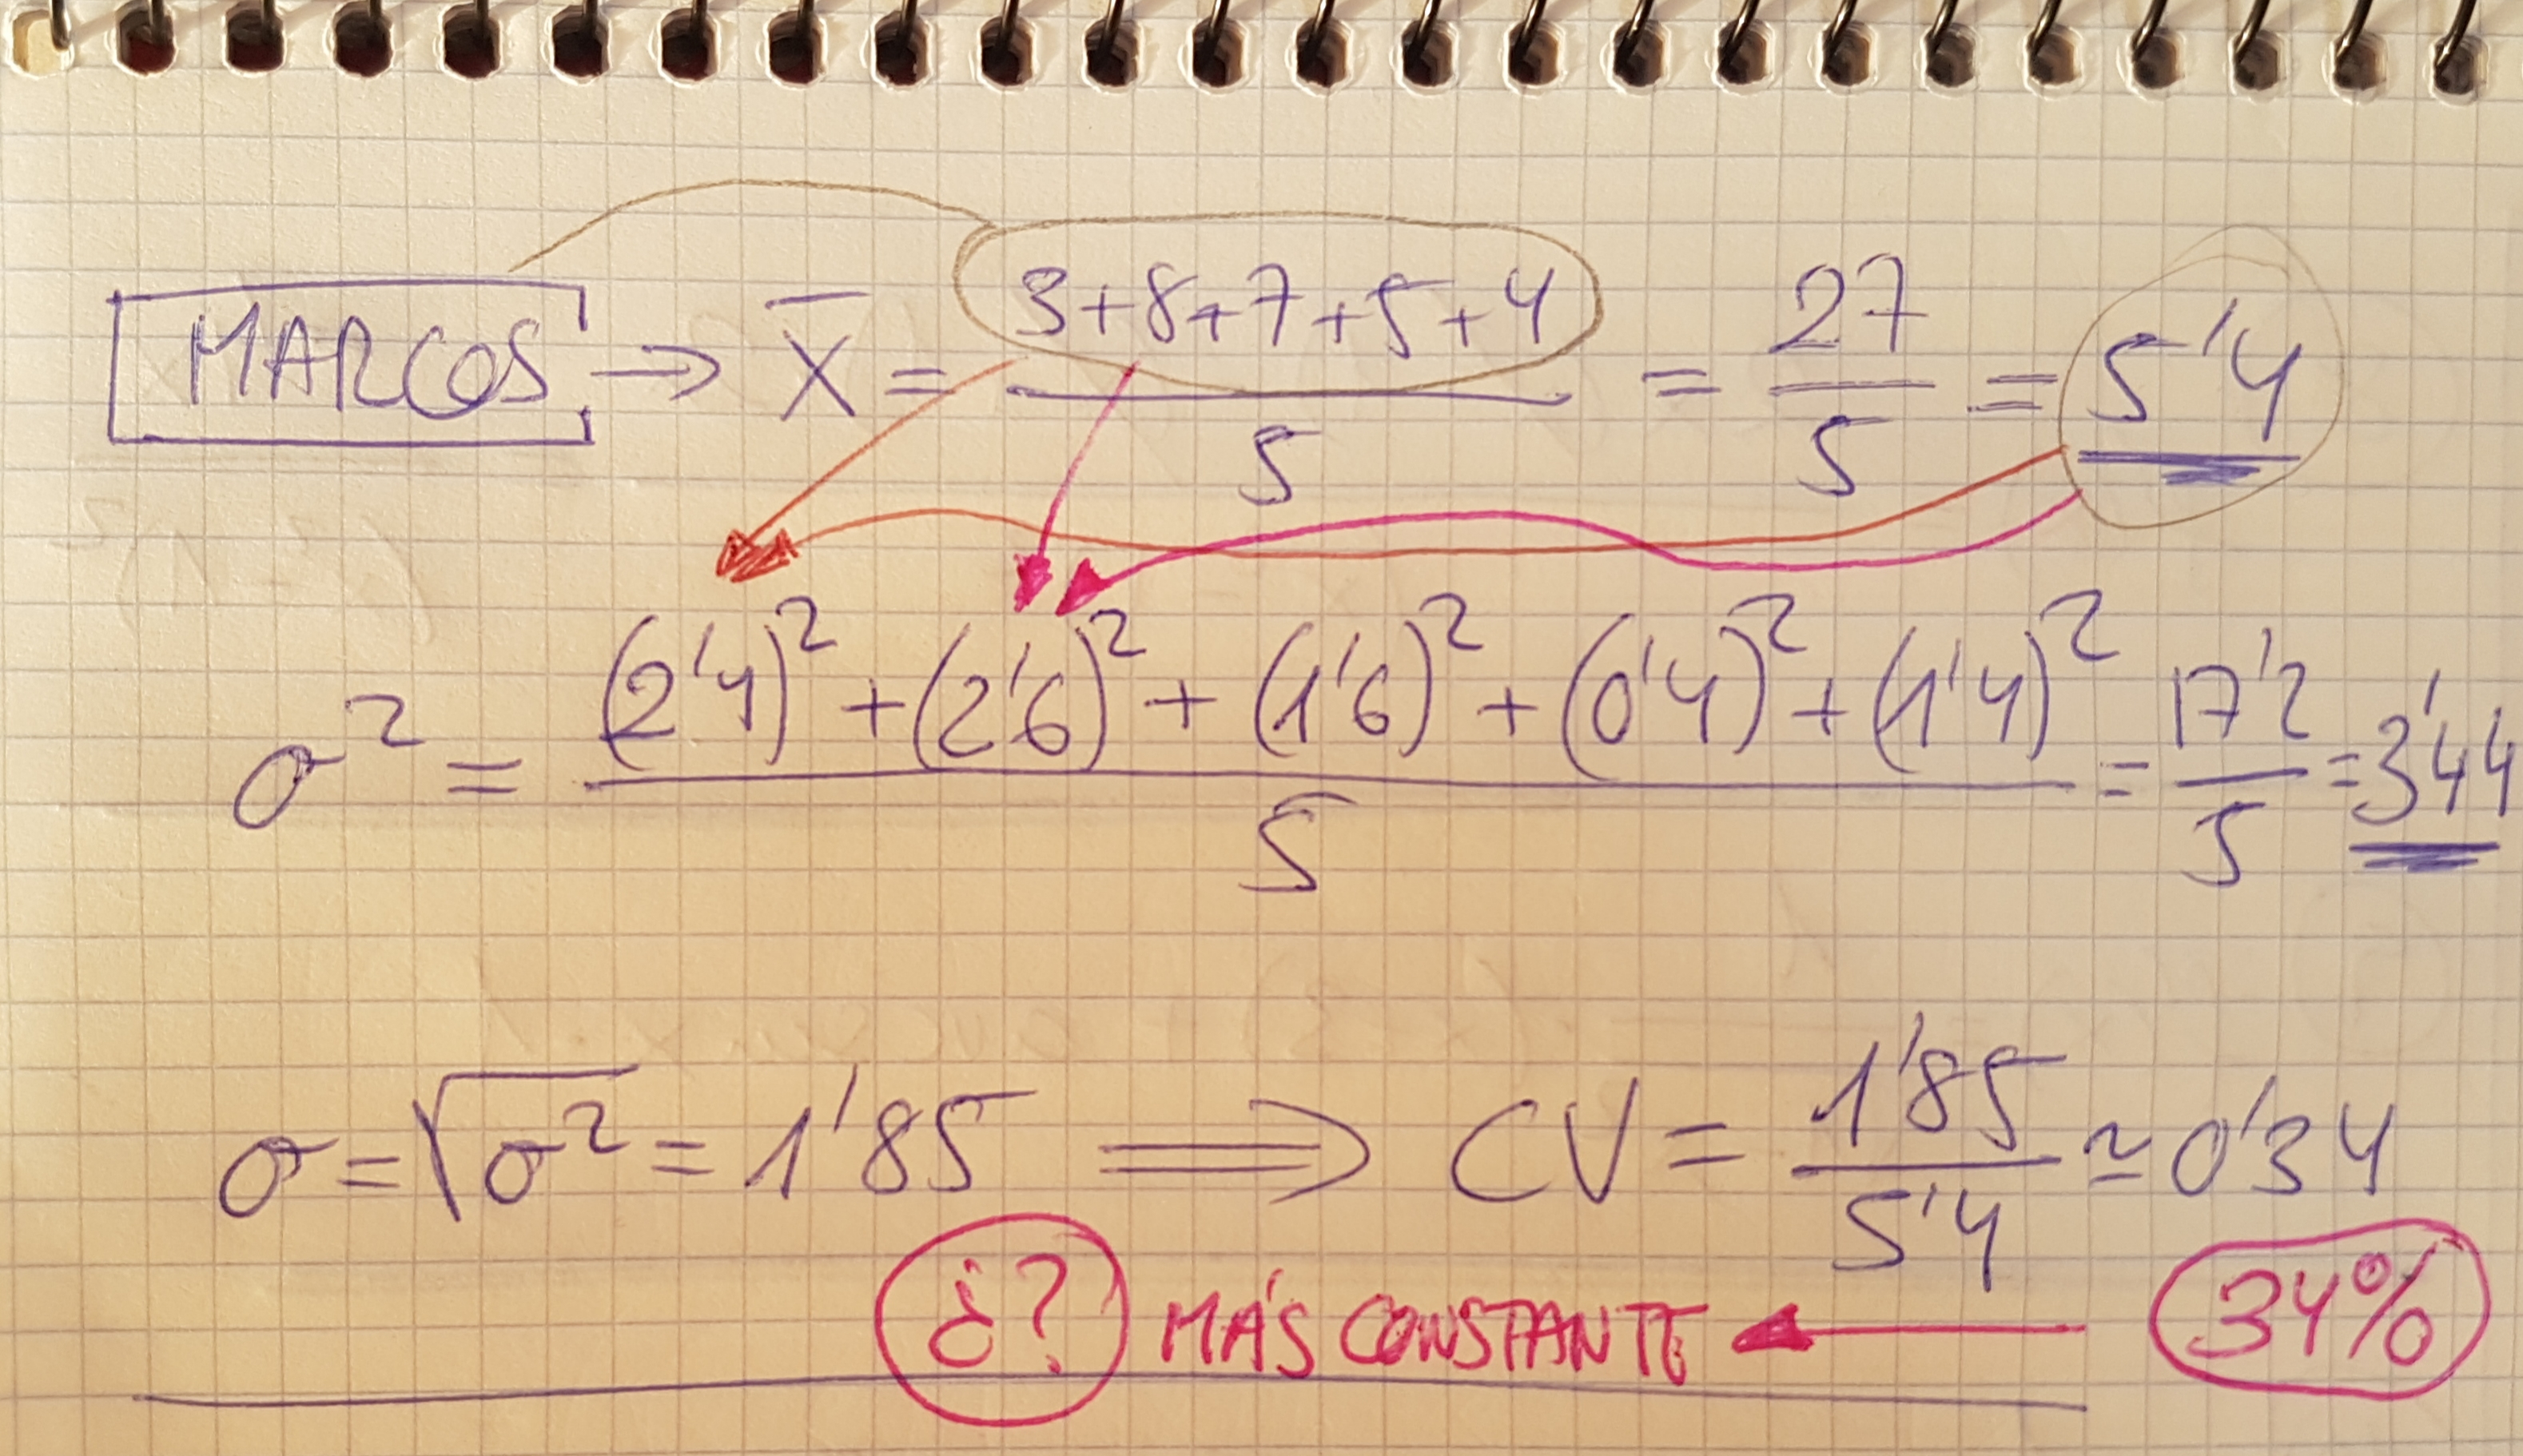 MARCOS → X̄ = (3+8+7+5+4)/5 = 27/5 = 5'4
σ² = ((2'4)² + (2'6)² + (1'6)² + (0'4)² + (1'4)²)/5 = 17'2/5 = 3'44
σ = √σ² = 1'85 ⟹ CV = 1'85/5'4 ≃ 0'34
¿? MÁS CONSTANTE ← 34%